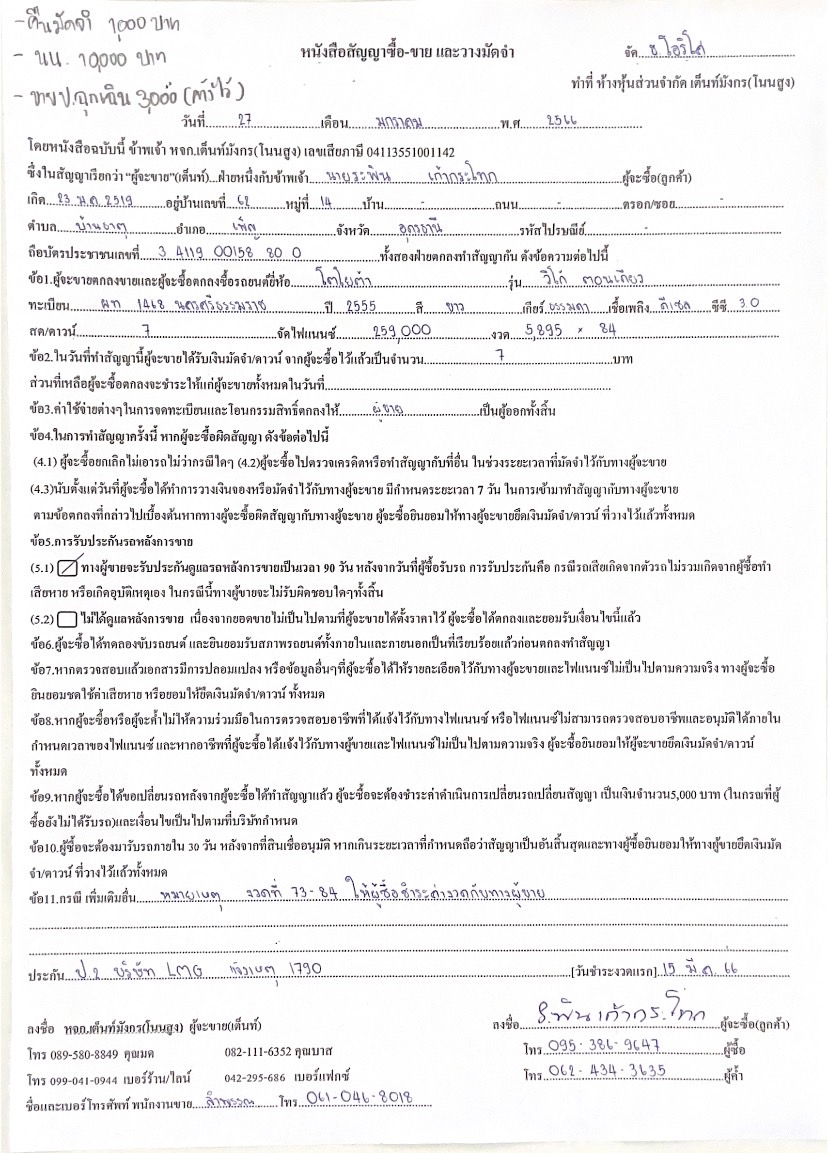 - คืนมัดจำ 1,000 บาท
- นน. 10,000 บาท
- ขายป.ฉุกเฉิน 3,000 (ค้ำไว้)
หนังสือสัญญาซื้อ-ขาย และวางมัดจำ
จัด ข.ไอริโศ
ทำที่ ห้างหุ้นส่วนจำกัด เต็นท์มังกร(โนนสูง)
วันที่ 27 เดือน มกราคม พ.ศ 2566
โดยหนังสือฉบับนี้ ข้าพเจ้า หจก.เต็นท์มังกร(โนนสูง) เลขเสียภาษี 04113551001142
ซึ่งในสัญญาเรียกว่า "ผู้จะขาย"(เต็นท์)...ฝ่ายหนึ่งกับข้าพเจ้า นายระพิน เก้ากระโทก ผู้จะซื้อ(ลูกค้า)
เกิด 23 ม.ค. 2519 อยู่บ้านเลขที่ 62 หมู่ที่ 14 บ้าน - ถนน - ตรอก/ซอย -
ตำบล บ้านธาตุ อำเภอ เพ็ญ จังหวัด อุดรธานี รหัสไปรษณีย์ -
ถือบัตรประชาชนเลขที่ 3 4119 00158 80 0 ทั้งสองฝ่ายตกลงทำสัญญากัน ดังข้อความต่อไปนี้
ข้อ1.ผู้จะขายตกลงขายและผู้จะซื้อตกลงซื้อรถยนต์ยี่ห้อ โตโยต้า รุ่น วีโก้ ตอนเดียว
ทะเบียน ผท 1468 นครศรีธรรมราช ปี 2555 สี ขาว เกียร์ ธรรมดา เชื้อเพลิง ดีเซล ซีซี 3.0
สด/ดาวน์ 7 จัดไฟแนนซ์ 259,000 งวด 5,895 × 84
ข้อ2.ในวันที่ทำสัญญานี้ผู้จะขายได้รับเงินมัดจำ/ดาวน์ จากผู้จะซื้อไว้แล้วเป็นจำนวน 7 บาท
ส่วนที่เหลือผู้จะซื้อตกลงจะชำระให้แก่ผู้จะขายทั้งหมดในวันที่
ข้อ3.ค่าใช้จ่ายต่างๆในการจดทะเบียนและโอนกรรมสิทธิ์ตกลงให้ ผู้ขาย เป็นผู้ออกทั้งสิ้น
ข้อ4.ในการทำสัญญาครั้งนี้ หากผู้จะซื้อผิดสัญญา ดังข้อต่อไปนี้
(4.1) ผู้จะซื้อยกเลิกไม่เอารถไม่ว่ากรณีใดๆ (4.2)ผู้จะซื้อไปตรวจเครดิตหรือทำสัญญากับที่อื่น ในช่วงระยะเวลาที่มัดจำไว้กับทางผู้จะขาย
(4.3)นับตั้งแต่วันที่ผู้จะซื้อได้ทำการวางเงินจองหรือมัดจำไว้กับทางผู้จะขาย มีกำหนดระยะเวลา 7 วัน ในการเข้ามาทำสัญญากับทางผู้จะขาย
ตามข้อตกลงที่กล่าวไปเบื้องต้นหากทางผู้จะซื้อผิดสัญญากับทางผู้จะขาย ผู้จะซื้อยินยอมให้ทางผู้จะขายยึดเงินมัดจำ/ดาวน์ ที่วางไว้แล้วทั้งหมด
ข้อ5.การรับประกันรถหลังการขาย
(5.1) ทางผู้ขายจะรับประกันดูแลรถหลังการขายเป็นเวลา 90 วัน หลังจากวันที่ผู้ซื้อรับรถ การรับประกันคือ กรณีรถเสียเกิดจากตัวรถไม่รวมเกิดจากผู้ซื้อทำ
เสียหาย หรือเกิดอุบัติเหตุเอง ในกรณีนี้ทางผู้ขายจะไม่รับผิดชอบใดๆทั้งสิ้น
(5.2) ไม่ได้ดูแลหลังการขาย เนื่องจากยอดขายไม่เป็นไปตามที่ผู้จะขายได้ตั้งราคาไว้ ผู้จะซื้อได้ตกลงและยอมรับเงื่อนไขนี้แล้ว
ข้อ6.ผู้จะซื้อได้ทดลองขับรถยนต์ และยินยอมรับสภาพรถยนต์ทั้งภายในและภายนอกเป็นที่เรียบร้อยแล้วก่อนตกลงทำสัญญา
ข้อ7.หากตรวจสอบแล้วเอกสารมีการปลอมแปลง หรือข้อมูลอื่นๆที่ผู้จะซื้อได้ให้รายละเอียดไว้กับทางผู้จะขายและไฟแนนซ์ไม่เป็นไปตามความจริง ทางผู้จะซื้อ
ยินยอมชดใช้ค่าเสียหาย หรือยอมให้ยึดเงินมัดจำ/ดาวน์ ทั้งหมด
ข้อ8.หากผู้จะซื้อหรือผู้จะค้ำไม่ให้ความร่วมมือในการตรวจสอบอาชีพที่ได้แจ้งไว้กับทางไฟแนนซ์ หรือไฟแนนซ์ไม่สามารถตรวจสอบอาชีพและอนุมัติได้ภายใน
กำหนดเวลาของไฟแนนซ์ และหากอาชีพที่ผู้จะซื้อได้แจ้งไว้กับทางผู้ขายและไฟแนนซ์ไม่เป็นไปตามความจริง ผู้จะซื้อยินยอมให้ผู้จะขายยึดเงินมัดจำ/ดาวน์
ทั้งหมด
ข้อ9.หากผู้จะซื้อได้ขอเปลี่ยนรถหลังจากผู้จะซื้อได้ทำสัญญาแล้ว ผู้จะซื้อจะต้องชำระค่าดำเนินการเปลี่ยนรถเปลี่ยนสัญญา เป็นเงินจำนวน5,000 บาท (ในกรณีที่ผู้
ซื้อยังไม่ได้รับรถ)และเงื่อนไขเป็นไปตามที่บริษัทกำหนด
ข้อ10.ผู้ซื้อจะต้องมารับรถภายใน 30 วัน หลังจากที่สินเชื่ออนุมัติ หากเกินระยะเวลาที่กำหนดถือว่าสัญญาเป็นอันสิ้นสุดและทางผู้ซื้อยินยอมให้ทางผู้ขายยึดเงินมัด
จำ/ดาวน์ ที่วางไว้แล้วทั้งหมด
ข้อ11.กรณี เพิ่มเติมอื่น หมายเหตุ งวดที่ 73-84 ให้ผู้ซื้อชำระค่างวดกับทางผู้ขาย
ประกัน ป.2 บริษัท LMG แจ้งเหตุ 1790 [วันชำระงวดแรก] 15 มี.ค. 66
ลงชื่อ หจก.เต็นท์มังกร(โนนสูง) ผู้จะขาย(เต็นท์)
ลงชื่อ ระพิน เก้ากระโทก ผู้จะซื้อ(ลูกค้า)
โทร 089-580-8849 คุณมด 082-111-6352 คุณบาส
โทร 095-386-9647 ผู้ซื้อ
โทร 099-041-0944 เบอร์ร้าน/ไลน์ 042-295-686 เบอร์แฟกซ์
โทร 062-434-3635 ผู้ค้ำ
ชื่อและเบอร์โทรศัพท์ พนักงานขาย ลำพรรณ โทร 061-046-8018